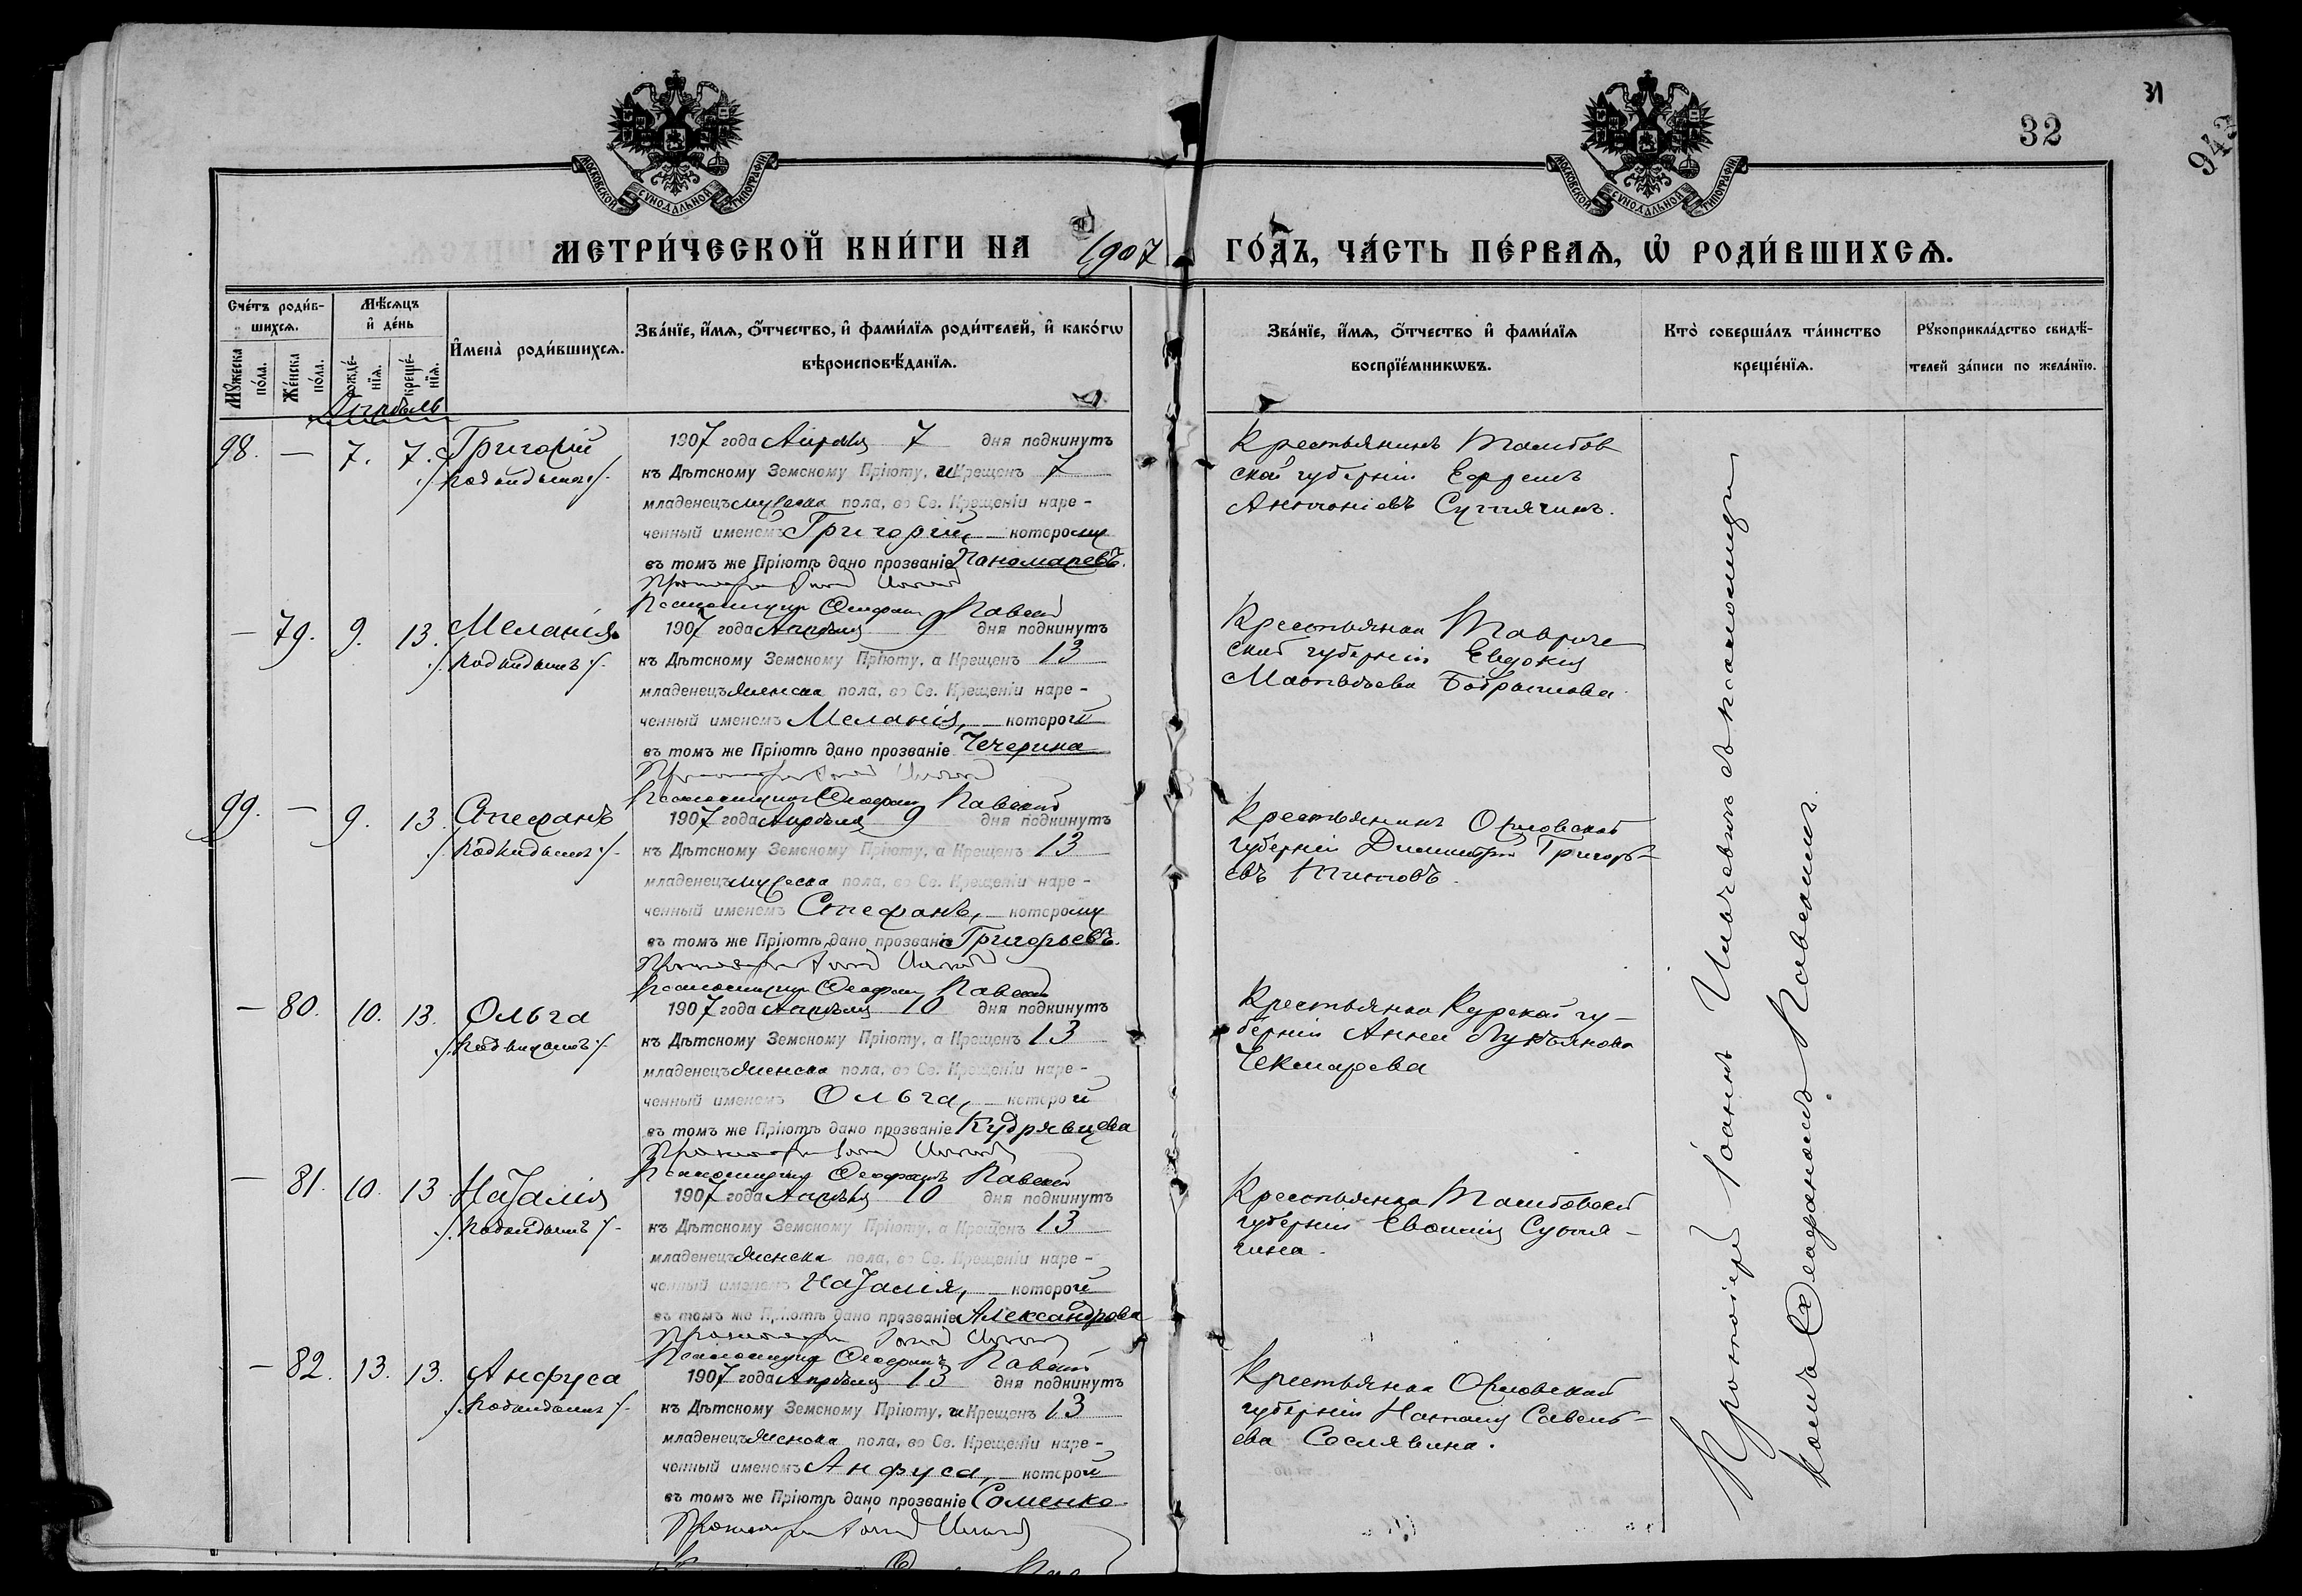 31
32
943
МОСКОВСКОЙ СѴНОДАЛЬНОЙ ТИПОГРАФІИ
МОСКОВСКОЙ СѴНОДАЛЬНОЙ ТИПОГРАФІИ
МЕТРИ́ЧЕСКОЙ КНИ́ГИ НА 1907 ГО́ДЪ, ЧА́СТЬ ПЕ́РВАѦ, Ѡ҆ РОДИ́ВШИХСѦ.
Сче́тъ роди́в-
шихсѧ.
Мꙋ́жеска по́ла.
Же́нска по́ла.
Мѣ́сѧцъ
и҆ де́нь
рожде́-
нїѧ.
креще́-
нїѧ.
И҆мена̀ роди́вшихсѧ.
Зва́нїе, и҆́мѧ, ѻ҆́тчество, и҆ фами́лїѧ роди́телей, и҆ како́гѡ
вѣроисповѣ́данїѧ.
Зва́нїе, и҆́мѧ, ѻ҆́тчество и҆ фами́лїѧ
воспрїе́мникѡвъ.
Кто̀ соверша́лъ та́инство
креще́нїѧ.
Рꙋкоприкла́дство свидѣ́-
телей за́писи по жела́нїю.
Апрѣль
98. — 7. 7. Григорій
/. подкидышъ ./.
1907 года Апрѣля 7 дня подкинутъ
къ Дѣтскому Земскому Пріюту, и Крещенъ 7
младенецъ мужеска пола, во Св. Крещеніи наре-
ченный именемъ Григорій, которому
въ томъ же Пріютѣ дано прозваніе Пономаревъ.
Протоіерей Іоаннъ
Псаломщикъ Ѳеофанъ Павскій
Крестьянинъ Тамбов
ской губерніи Ефремъ
Антоніевъ Сутягинъ.
— 79. 9. 13. Меланія.
/. подкидышъ ./.
1907 года Апрѣля 9 дня подкинутъ
къ Дѣтскому Земскому Пріюту, а Крещенъ 13
младенецъ женска пола, во Св. Крещеніи наре-
ченный именемъ Меланія, которой
въ томъ же Пріютѣ дано прозваніе Чечерина
Протоіерей Іоаннъ
Псаломщикъ Ѳеофанъ Павскій
Крестьянка Тавриче
ской губерніи Евдокія
Матвѣева
99. — 9. 13. Стефанъ
/. подкидышъ ./.
1907 года Апрѣля 9 дня подкинутъ
къ Дѣтскому Земскому Пріюту, а Крещенъ 13
младенецъ мужеска пола, во Св. Крещеніи наре-
ченный именемъ Стефанъ, которому
въ томъ же Пріютѣ дано прозваніе Григорьевъ.
Протоіерей Іоаннъ
Псаломщикъ Ѳеофанъ Павскій
Крестьянинъ Орловской
губерніи Димитрій Григорь-
евъ Титовъ.
— 80. 10. 13. Ольга
/. подкидышъ ./.
1907 года Апрѣля 10 дня подкинутъ
къ Дѣтскому Земскому Пріюту, а Крещенъ 13
младенецъ женска пола, во Св. Крещеніи наре-
ченный именемъ Ольга, которой
въ томъ же Пріютѣ дано прозваніе Кудрявцева
Протоіерей Іоаннъ
Псаломщикъ Ѳеофанъ Павскій
Крестьянка Курской гу-
берніи Анна Лукьянова
Чекмарева
— 81. 10. 13 Наталія
/. подкидышъ ./.
1907 года Апрѣля 10 дня подкинутъ
къ Дѣтскому Земскому Пріюту, а Крещенъ 13
младенецъ женска пола, во Св. Крещеніи наре-
ченный именемъ Наталія, которой
въ томъ же Пріютѣ дано прозваніе Александрова
Протоіерей Іоаннъ
Псаломщикъ Ѳеофанъ Павскій
Крестьянка Тамбовской
губерніи Евѳимія Сутя-
гина.
— 82. 13. 13. Анфуса
/. подкидышъ ./.
1907 года Апрѣля 13 дня подкинутъ
къ Дѣтскому Земскому Пріюту, и Крещенъ 13
младенецъ женска пола, во Св. Крещеніи наре-
ченный именемъ Анфуса, которой
въ томъ же Пріютѣ дано прозваніе Соменко
Протоіерей Іоаннъ
Крестьянка Орловской
губерніи Наталія Савель-
ева Сеславина.
Протоіерей Іоаннъ съ псаломщи
комъ Ѳеофаномъ Павскимъ.